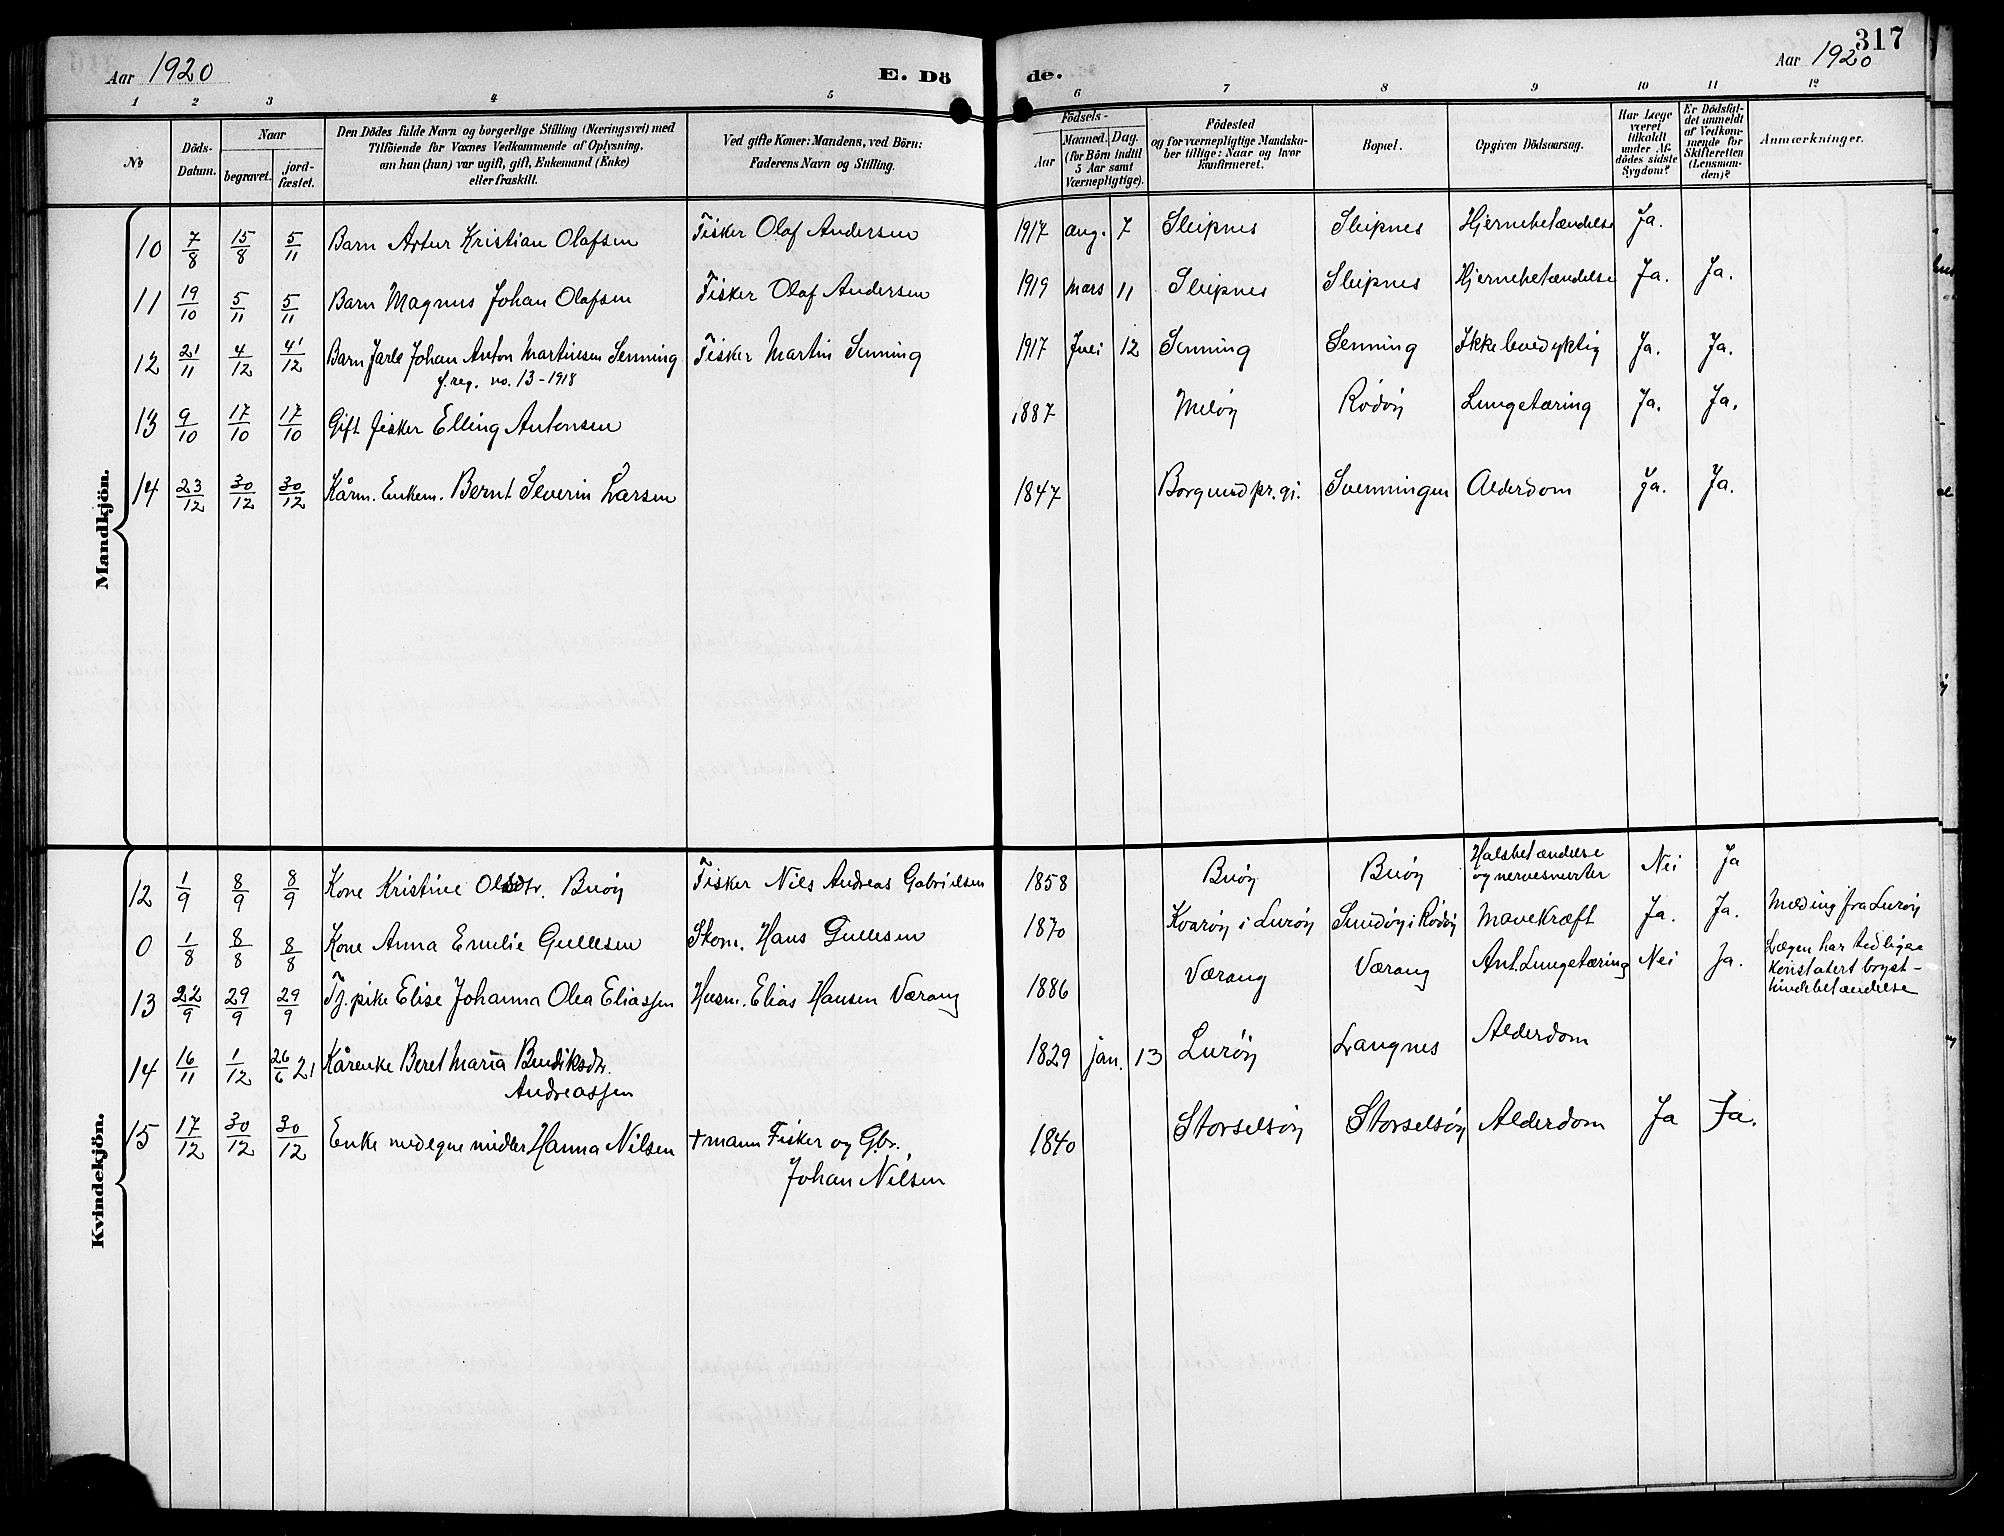 317
Aar 1920
E. Dö
de.
Aar 1920
1 2 3 4 5 6 7 8 9 10 11 12
No
Döds-Datum.
Naar
begravet.
jord-fæstet.
Den Dödes fulde Navn og borgerlige Stilling (Næringsvei) med
Tilföiende for Voxnes Vedkommende af Oplysning,
om han (hun) var ugift, gift, Enkemand (Enke)
eller fraskilt.
Ved gifte Koner: Mandens, ved Börn:
Faderens Navn og Stilling.
Födsels-
Aar
Maaned. Dag.
(for Börn indtil
5 Aar samt
Værnepligtige).
Födested
og for værnepligtige Mandska-
ber tillige: Naar og hvor
konfirmeret.
Bopæl.
Opgiven Dödsaarsag.
Har Læge
været
tilkaldt
under Af-
dödes sidste
Sygdom?
Er Dödsfal-
det anmeldt
af Vedkom-
mende for
Skifteretten
(Lensman-
den)?
Anmærkninger.
Mandkjön.
10 7/8 15/8 5/11 Barn Artur Kristian Olafsen Fisker Olaf Andersen 1917 aug. 7 Sleipnes Sleipnes Hjernebetændelse Ja.
11 19/10 5/11 5/11 Barn Magnus Johan Olafsen Fisker Olaf Andersen 1919 mars 11 Sleipnes Sleipnes Hjernebetændelse Ja. Ja.
12 21/11 4/12 4/12 Barn Jarle Johan Anton Martinsen Senning Fisker Martin Senning 1917 Juni 12 Senning Senning Ikke Ja. Ja.
f. reg. no. 13-1918
13 9/10 17/10 17/10 Gift fisker Elling Antonsen 1887 Meløy Rødøy Lungetæring Ja. Ja.
14 23/12 30/12 30/12 Kårm. Enkem. Bernt Severin Larsen 1847 Borgund pr. gj. Svenningen Alderdom Ja. Ja.
Kvindekjön.
12 1/9 8/9 8/9 Kone Kristine Olsdtr. Buøy Fisker Nils Andreas Gabrielsen 1858 Buøy Buøy Halsbetændelse
og nervesmerter Nei Ja
0 1/8 8/8 8/8 Kone Anna Emelie Gullesen Skom. Hans Gullesen 1870 Kvarøy i Lurøy Sundøy i Rødøy Mavekræft Ja. Ja. Melding fra Lurøy
13 22/9 29/9 29/9 Tj. pike Elise Johanna Olea Eliassen Husm. Elias Hansen Værang 1886 Værang Værang Ant. Lungetæring Nei Ja. Lægen har tidligre
konstatert bryst-
hindebetændelse
14 16/11 1/12 26/6 21 Kårenke Beret Maria Bendiksdtr.
Andreassen 1829 jan. 13 Lurøy Langnes Alderdom
15 17/12 30/12 30/12 Enke med egne midler Hanna Nilsen † mann Fisker og Gbr.
Johan Nilsen 1840 Storselsøy Storselsøy Alderdom Ja Ja.